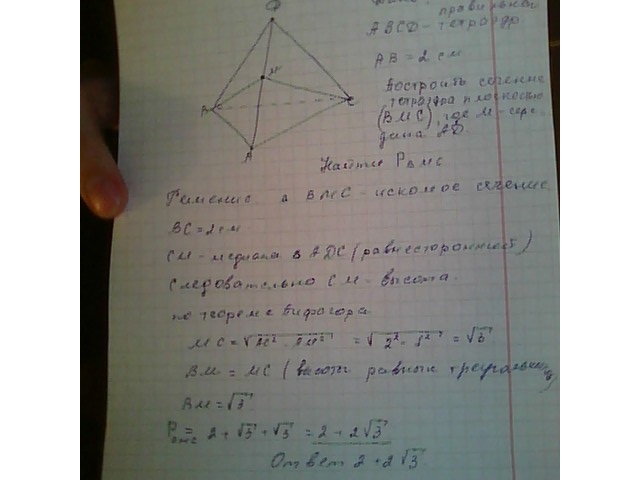 правильный
ABCD - тетраэдр
AB = 2 см
Построить сечение
тетраэдра плоскостью
(BMC), где M - сере-
дина AD.
Найти P BMC
D
M
B
C
A
Решение. Δ BMC - искомое сечение
BC = 2 см
CM - медиана в ADC (равносторонний)
Следовательно CM - высота.
по теореме Пифагора
MC = √AC² - AM² = √2² - 1² = √3
BM = MC (высоты равных треугольников)
BM = √3
P BMC = 2 + √3 + √3 = 2 + 2√3
Ответ 2 + 2√3